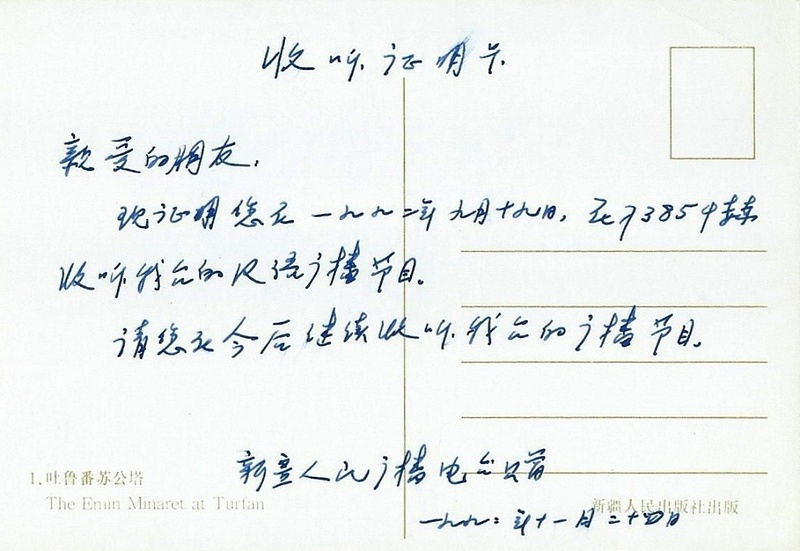 收听证明卡.
亲爱的朋友,
现证明您在一九九二年九月十九日,在7385千赫
收听我台的汉语广播节目。
请您在今后继续收听我台的广播节目。
新疆人民广播电台
一九九二年十一月二十四日
1.吐鲁番苏公塔
The Emin Minaret at Turfan
新疆人民出版社出版